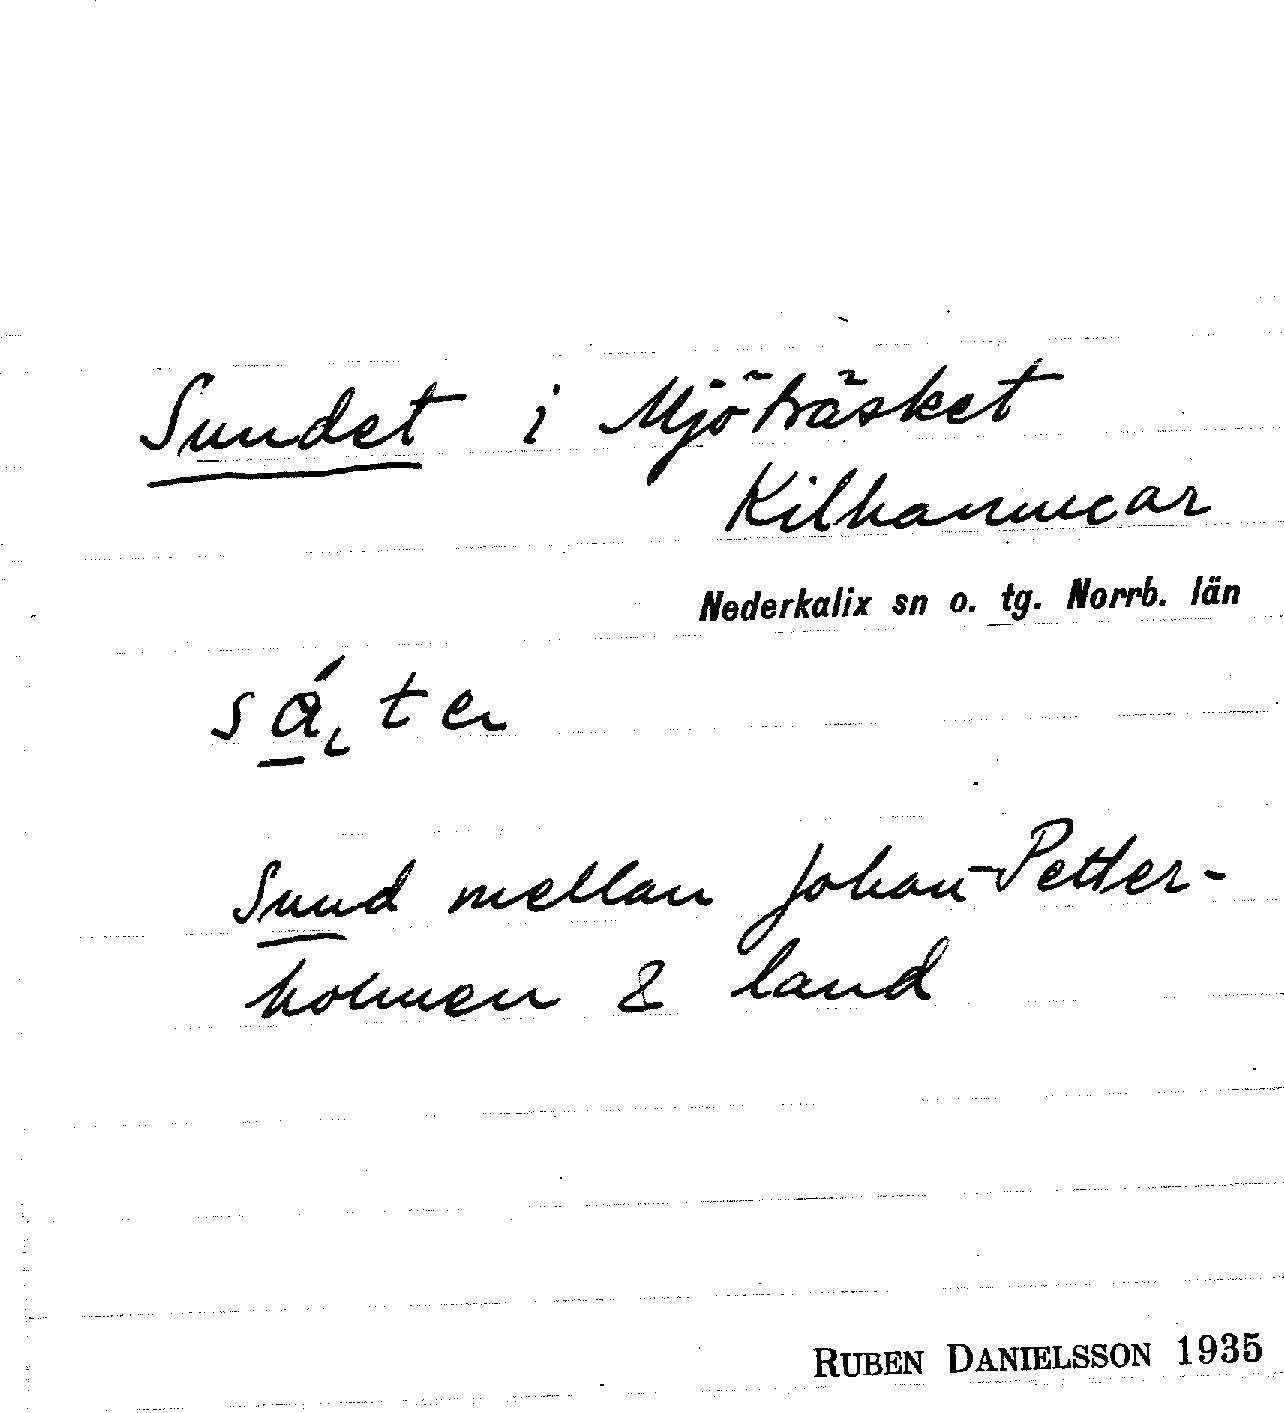 Sundet i Mjöträsket
Kilhammar
Nederkalix sn o. tg. Norrb. län
Sund mellan Johan-Petter-
holmen & land
RUBEN DANIELSSON 1935